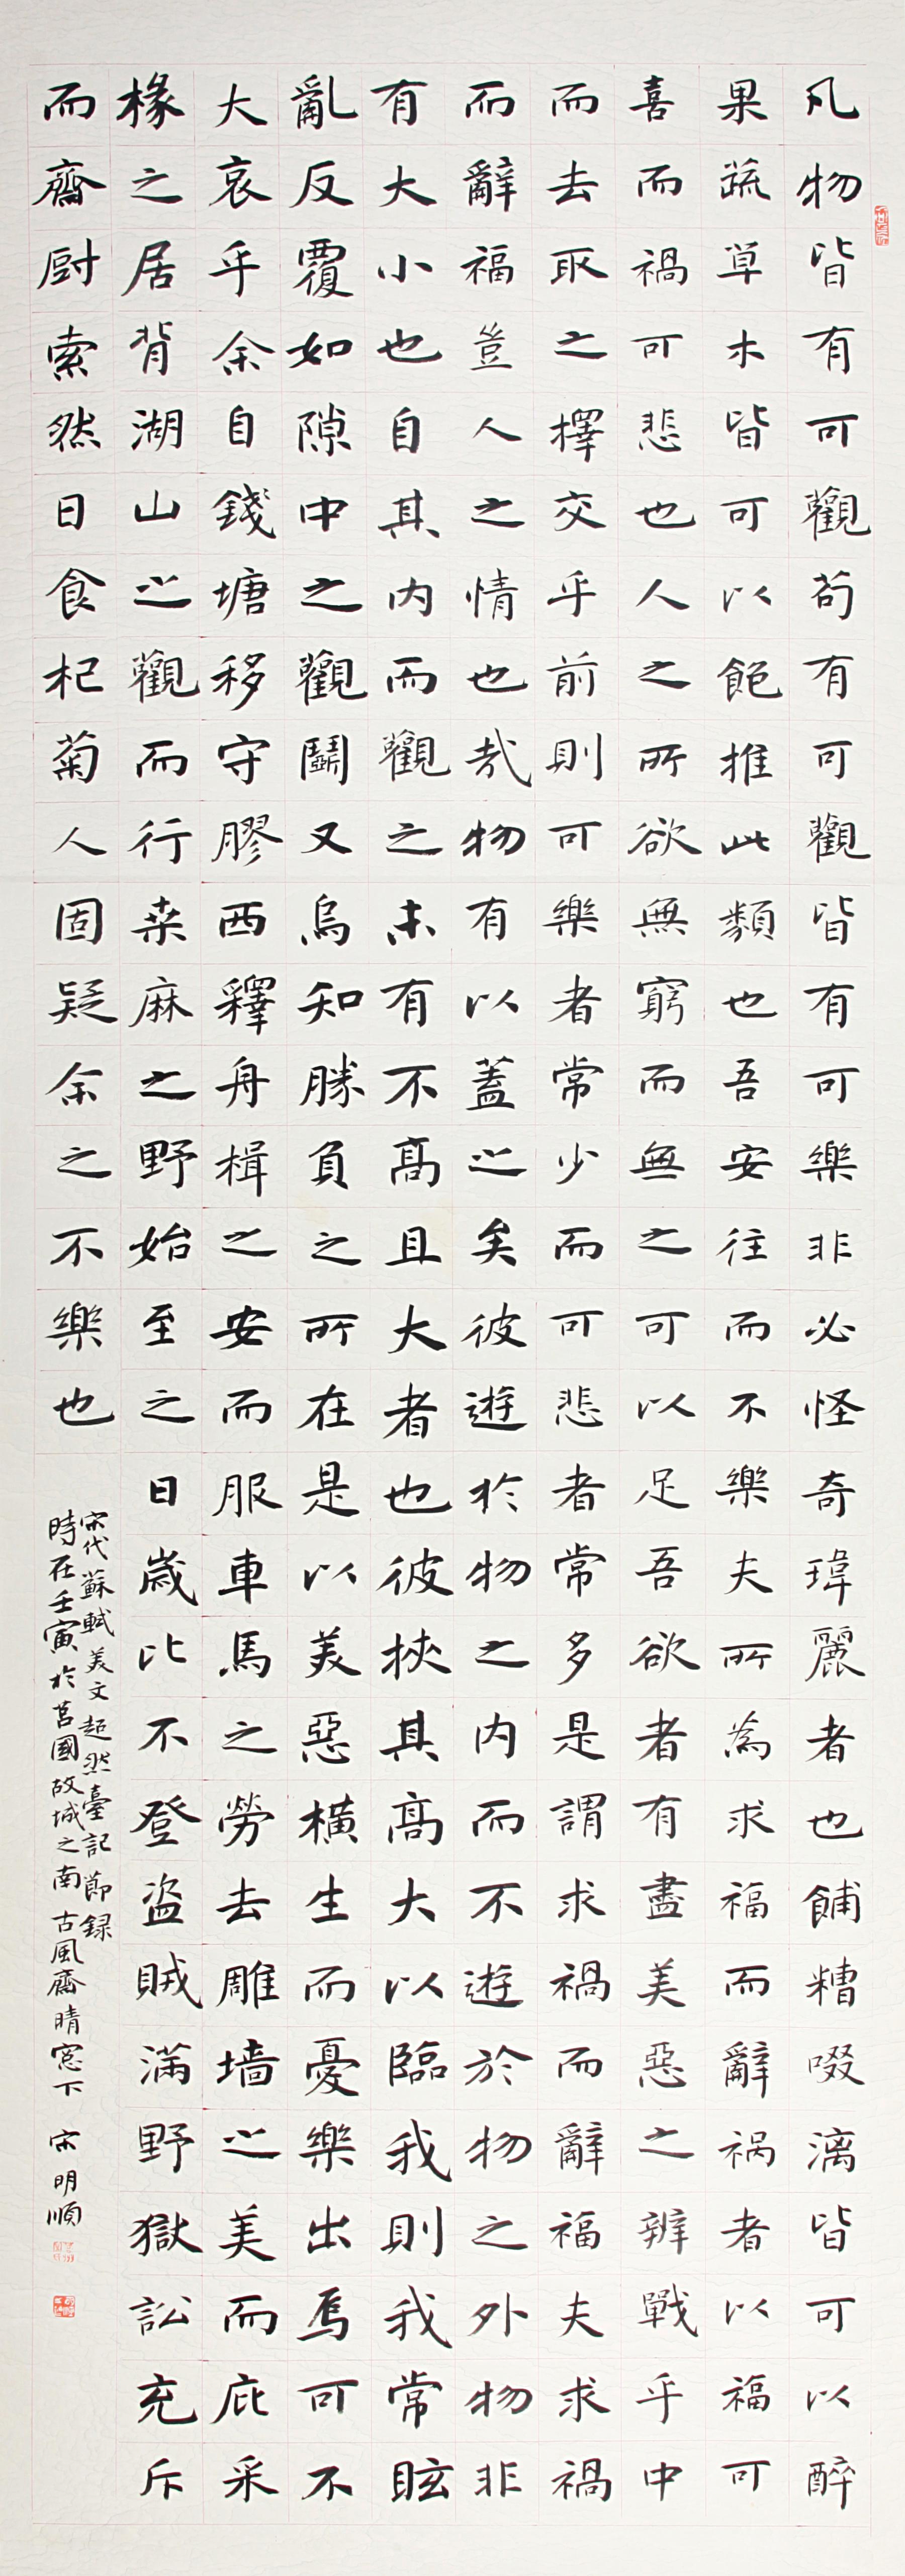 凡物皆有可觀苟有可觀皆有可樂非必怪奇瑋麗者也餔糟啜漓皆可以醉
果蔬草木皆可以飽推此類也吾安往而不樂夫所為求福而辭禍者以福可
喜而禍可悲也人之所欲無窮而無之可以足吾欲者有盡美惡之辨戰乎中
而去取之擇交乎前則可樂者常少而可悲者常多是謂求禍而辭福夫求禍
而辭福豈人之情也哉物有以蓋之矣彼遊於物之內而不遊於物之外物非
有大小也自其內而觀之未有不高且大者也彼挾其高大以臨我則我常眩
亂反覆如隙中之觀鬭又烏知勝負之所在是以美惡橫生而憂樂出焉可不
大哀乎余自錢塘移守膠西釋舟楫之安而服車馬之勞去雕墻之美而庇采
椽之居背湖山之觀而行桒麻之野始至之日歲比不登盜賊滿野獄訟充斥
而齋厨索然日食杞菊人固疑余之不樂也
宋代蘇軾美文超然臺記節録
時在壬寅於莒國故城之南古風齋晴窓下 宋明順